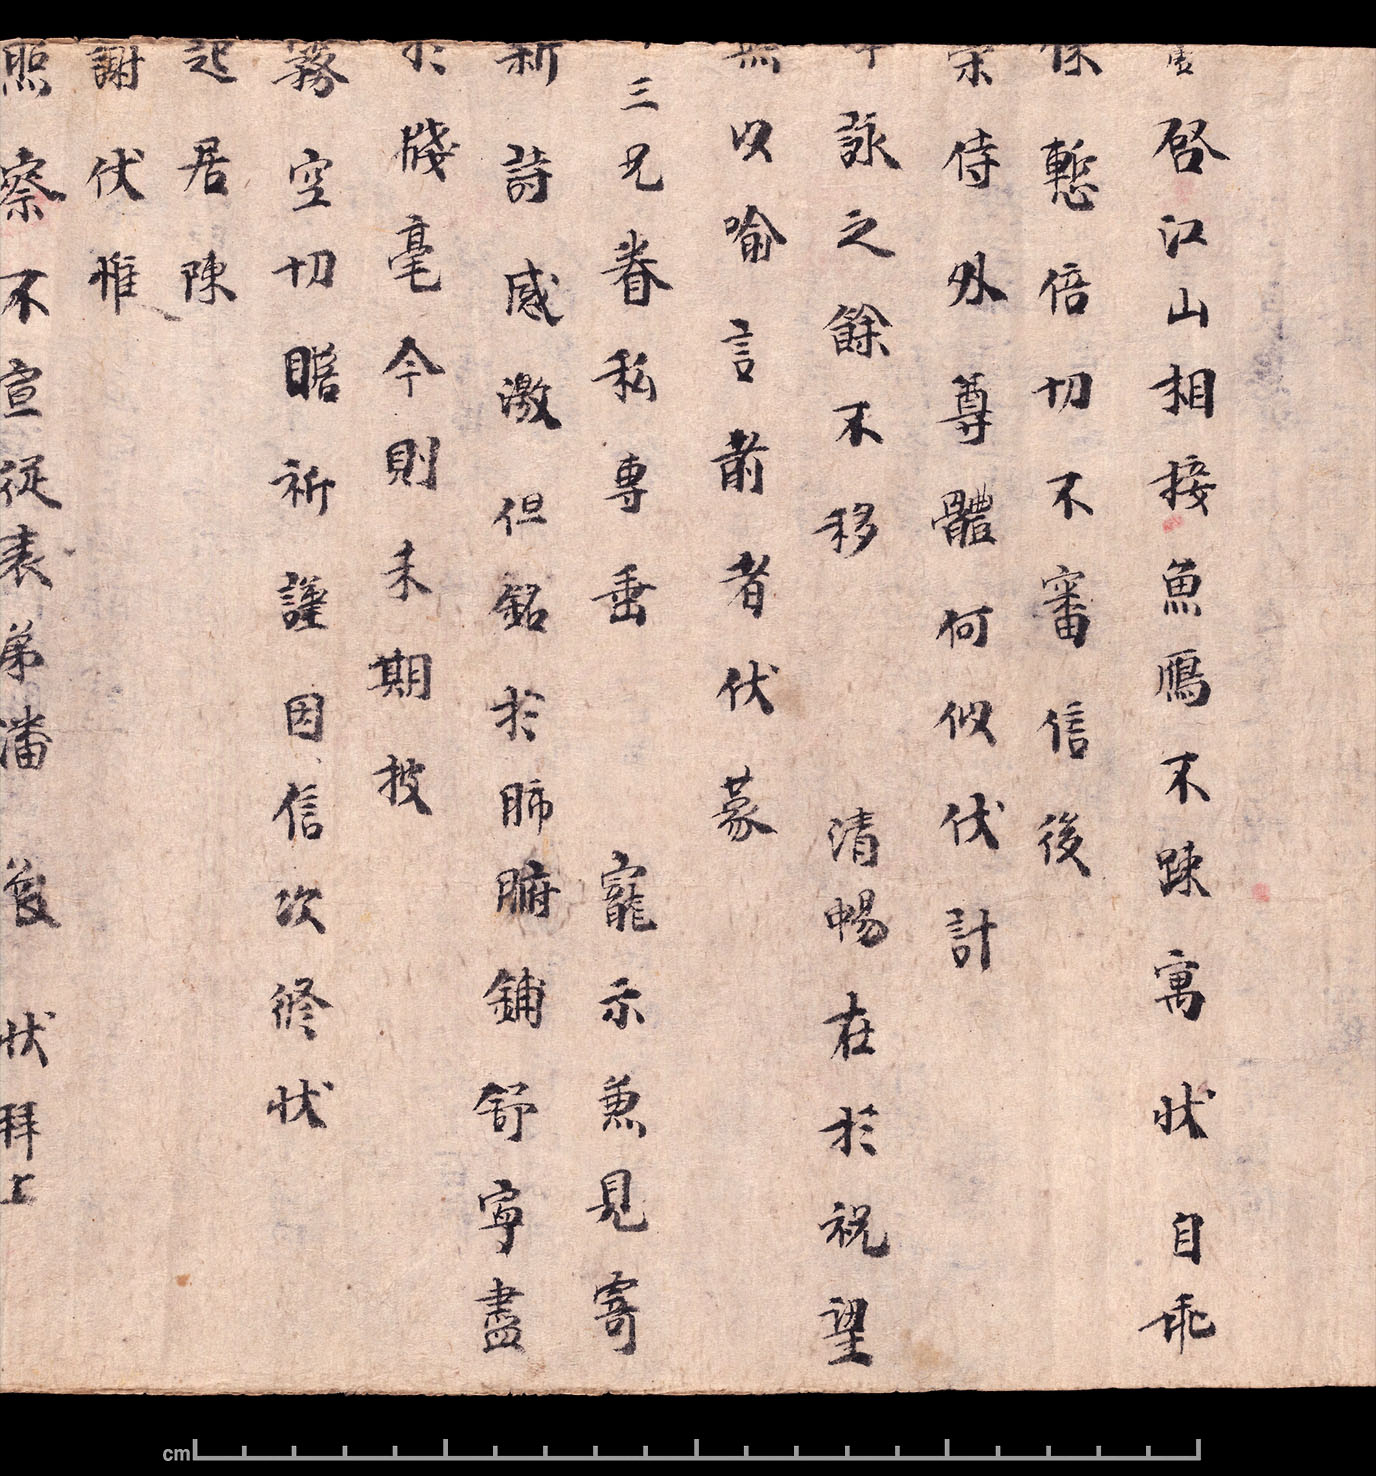 啓江山相接魚鴈不踈寓狀自乖
慙倍切不審信後
榮侍外尊體何似伏計
詠之餘不移 清暢在於祝望
無以喻言前者伏蒙
三兄眷私專垂 寵示兼見寄
新詩感激但銘於肺腑鋪舒寧盡
於牋毫今則未期披
霧空切瞻祈謹因信次修狀
起居陳
謝伏惟
照察不宣從表弟潘 狀拜上